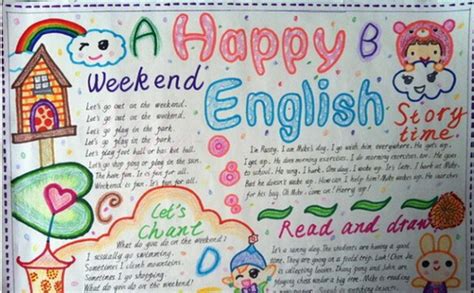 A Happy B
English
Weekend
Let's go out on the weekend.
Let's go out on the weekend.
Let's play in the park.
Let's go play in the park.
Let's play foot ball or bat ball.
Let's go play in the sun.
The sun, fun. It is fun for all.
Weekend is fun for all.
Story
time
I'm Rusty. I am Mike's dog. I go with him everywhere. He gets up.
I get up. He does morning exercises. I do morning exercises. He goes
to school. He sings, I bark. One day, I wake up. It's late. I bark at Mike.
But he doesn't wake up. How can I help him? Mike wakes up because
Oh, Mike, come on! Hurry up!
C
Let's
Chant
What do you do on the weekend?
I usually go swimming.
Sometimes I climb mountains.
Sometimes I go shopping.
What do you do on the weekend?
Read and draw
It's a sunny day. The students are having a good
time. They are on a field trip. Look! Chen Jie
is collecting leaves. Zhang Peng and John are
playing chess under a tree. Mike is reading